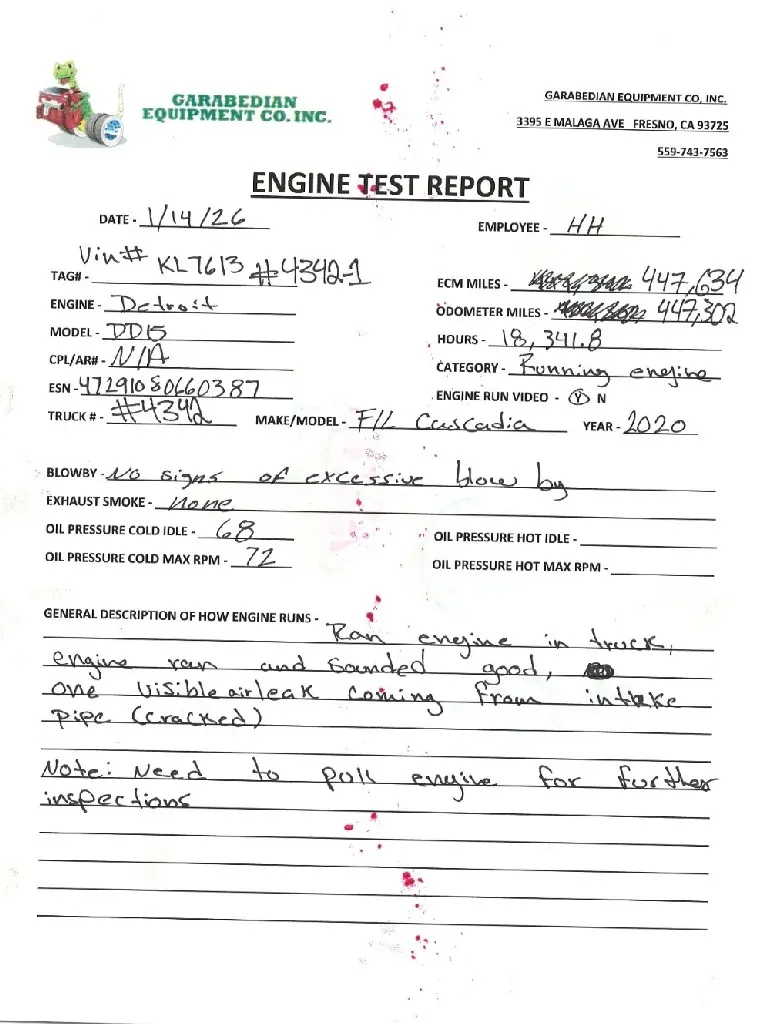 GARABEDIAN
EQUIPMENT CO. INC.
GARABEDIAN EQUIPMENT CO, INC.
3395 E MALAGA AVE FRESNO, CA 93725
559-743-7563
ENGINE TEST REPORT
DATE - 1/14/26
EMPLOYEE - HH
TAG# - Vin# KL7613 #4342-1
ECM MILES - 447,634
ENGINE - Detroit
ODOMETER MILES - 447,302
MODEL - DD15
HOURS - 18,341.8
CPL/AR# - N/A
CATEGORY - Running engine
ESN - 472910S0660387
ENGINE RUN VIDEO - Y N
TRUCK # - #4342
MAKE/MODEL - F/L Cascadia
YEAR - 2020
BLOWBY - No signs of excessive blow by
EXHAUST SMOKE - none
OIL PRESSURE COLD IDLE - 68
OIL PRESSURE HOT IDLE -
OIL PRESSURE COLD MAX RPM - 72
OIL PRESSURE HOT MAX RPM -
GENERAL DESCRIPTION OF HOW ENGINE RUNS - Ran engine in truck,
engine ran and sounded good,
one visible air leak coming from intake
pipe (cracked)
Note: Need to pull engine for further
inspections